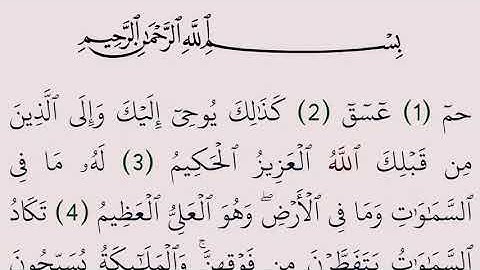 بِسْمِ ٱللَّهِ ٱلرَّحْمَٰنِ ٱلرَّحِيمِ
حمٓ (1) عٓسٓقٓ (2) كَذَٰلِكَ يُوحِىٓ إِلَيْكَ وَإِلَى ٱلَّذِينَ
مِن قَبْلِكَ ٱللَّهُ ٱلْعَزِيزُ ٱلْحَكِيمُ (3) لَهُۥ مَا فِى
ٱلسَّمَٰوَٰتِ وَمَا فِى ٱلْأَرْضِ ۖ وَهُوَ ٱلْعَلِىُّ ٱلْعَظِيمُ (4) تَكَادُ
ٱلسَّمَٰوَٰتُ يَتَفَطَّرْنَ مِن فَوْقِهِنَّ ۚ وَٱلْمَلَٰٓئِكَةُ يُسَبِّحُونَ